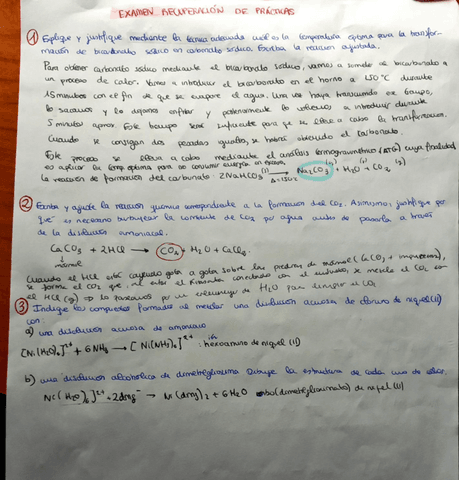 EXAMEN RECUPERACIÓN DE PRÁCTICAS
① Explique y justifique mediante la técnica adecuada cuál es la temperatura óptima para la transfor-
mación de bicarbonato sódico en carbonato sódico. Escriba la reacción ajustada.
Para obtener carbonato sódico mediante el bicarbonato sódico, vamos a someter al bicarbonato a
un proceso de calor. Vamos a introducir el bicarbonato en el horno a 150°C durante
15 minutos con el fin de que se evapore el agua. Una vez haya transcurrido ese tiempo,
lo sacamos y lo dejamos enfriar y posteriormente lo volvemos a introducir durante
5 minutos aprox. Este tiempo será suficiente para que se lleve a cabo la transformación.
Cuando se consigan dos pesadas iguales, se habrá obtenido el carbonato.
Este proceso se lleva a cabo mediante el análisis termogravimétrico (ATG) cuya finalidad
es aplicar la temp óptima para no consumir energía en exceso.
la reacción de formación del carbonato: 2NaHCO3 (s) → Na2CO3 (s) + H2O (g) + CO2 (g)
② Escriba y ajuste la reacción química correspondiente a la formación del CO2. Asimismo, justifique por
qué es necesario burbujear la corriente de CO2 por agua antes de pasarla a través
de la disolución amoniacal.
CaCO3 + 2HCl → CO2 + H2O + CaCl2
mármol
Cuando el HCl está cayendo gota a gota sobre las piedras de mármol (CaCO3 + impurezas),
se forma el CO2 que, al estar el Kitasato con el
el HCl (g) ⇒ Lo pasamos por un de H2O para limpiar el CO2
③ Indique los compuestos formados al mezclar una disolución acuosa de cloruro de níquel (II)
con:
a) una disolución acuosa de amoniaco
[Ni(H2O)6]2+ + 6NH3 → [Ni(NH3)6]2+ : ión hexaamino de níquel (II)
b) una disolución alcohólica de dimetilglioxima. Dibuje la estructura de cada uno de ellos.
Ni(H2O)6]2+ + 2dmg- → Ni(dmg)2 + 6H2O (dimetilglioximato) de níquel (II)